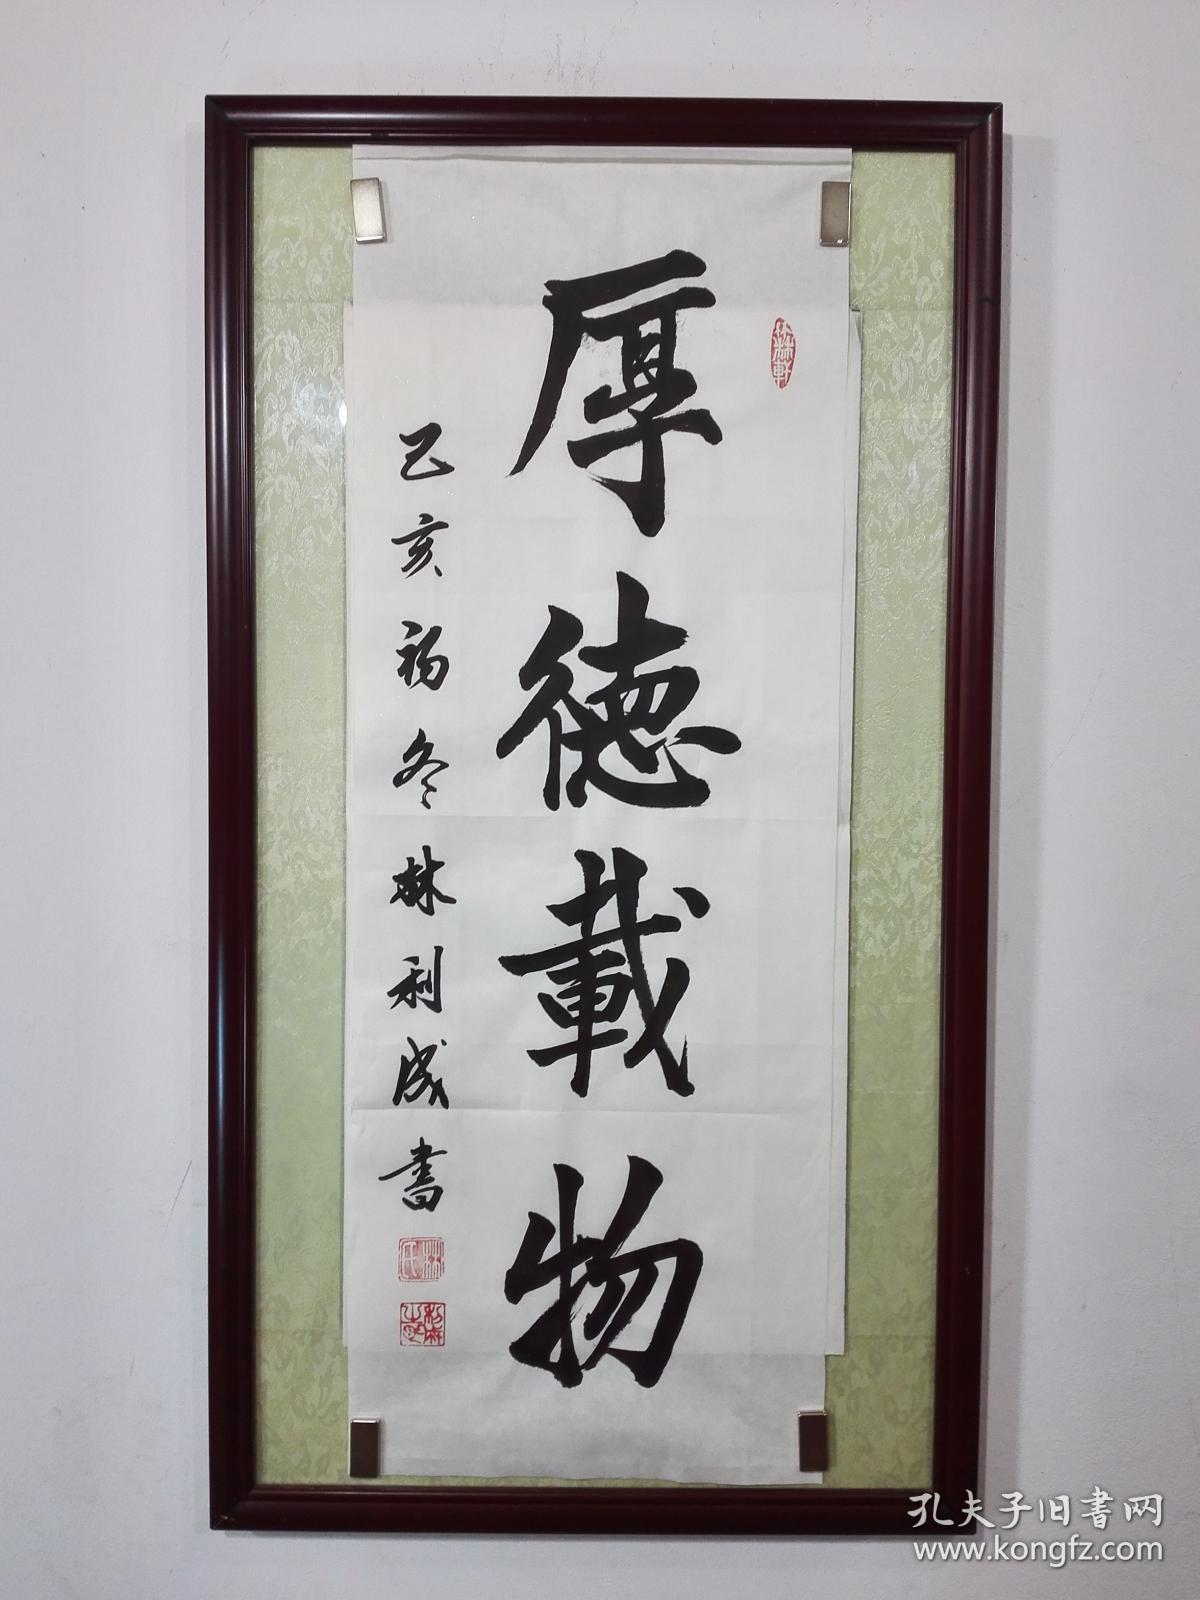 厚德載物
己亥初冬林利成書
林氏
孔夫子旧书网
www.kongfz.com